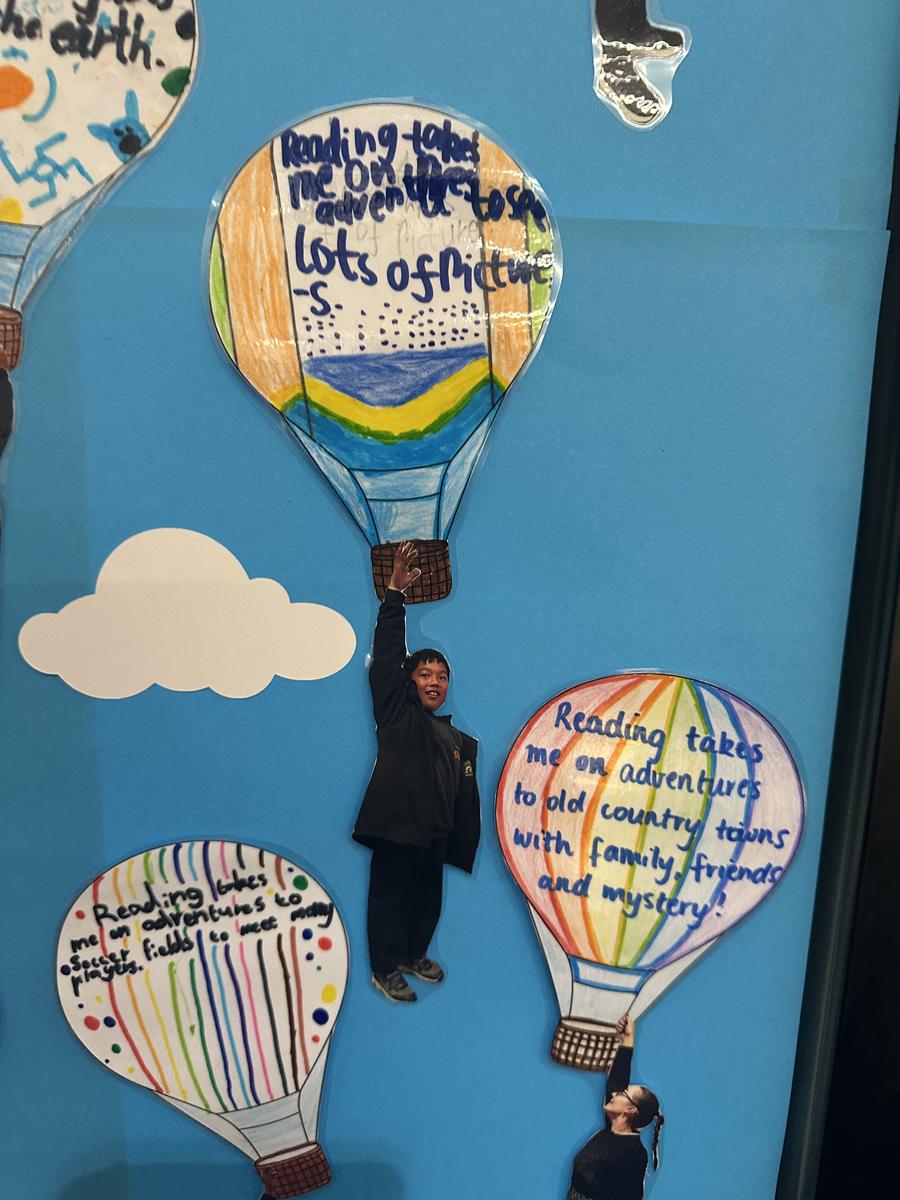 the earth.
Reading takes
me on
adven to see
Lots of Picture
-S.
Reading takes
me on adventures
to old country towns
with family, friends
and mystery!
Reading takes
me on adventures to
Soccer fields to meet many
players.